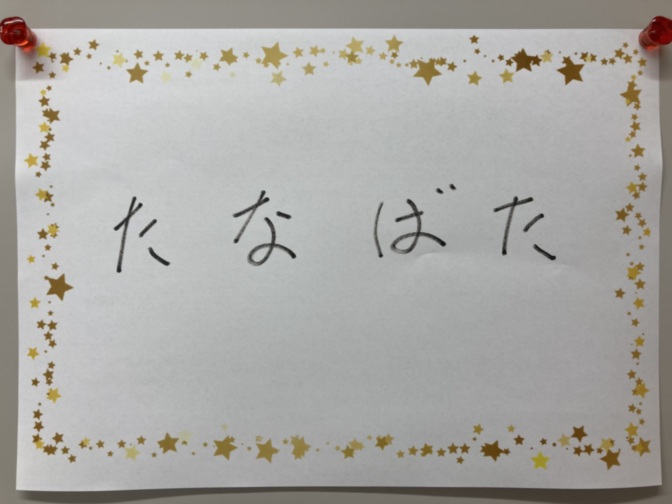 たなばた